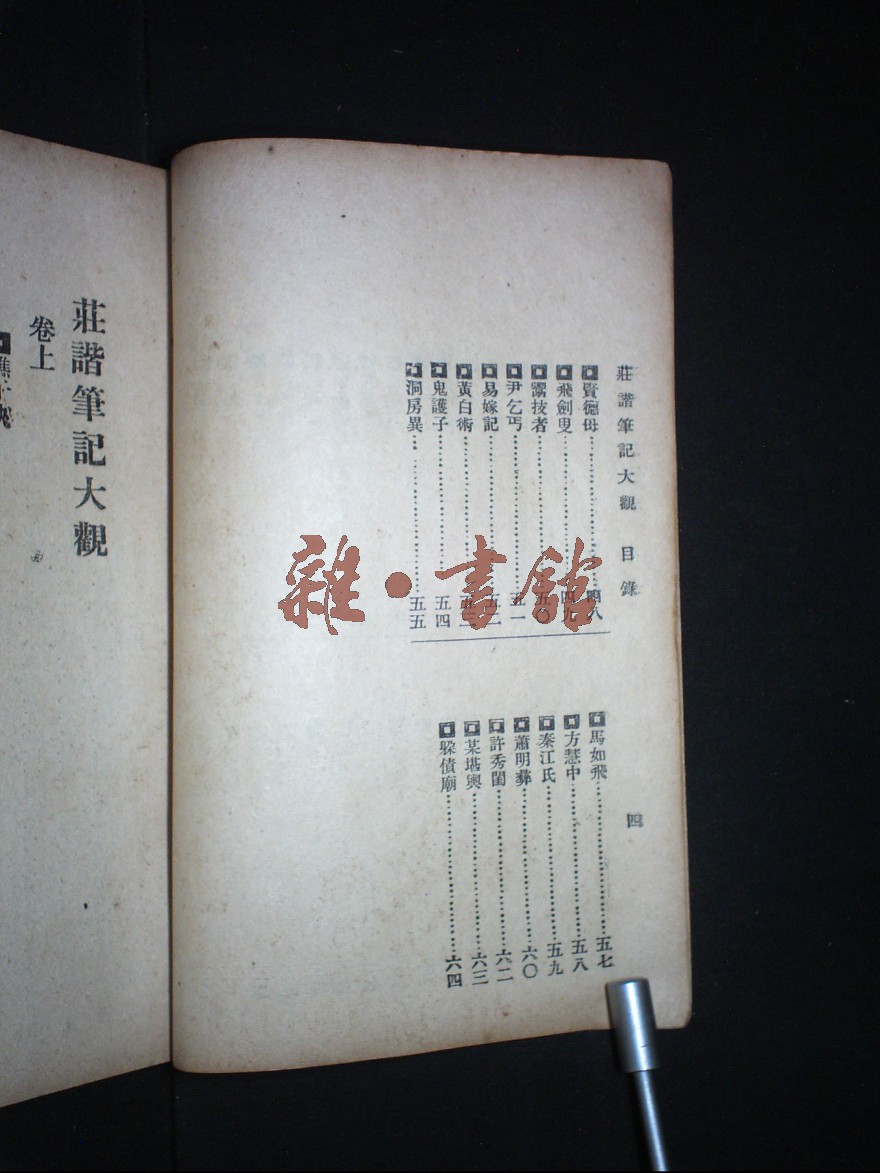 莊諧筆記大觀 目錄
四
賢德母 四八
飛劍叟 四九
鬻技者 五〇
尹乞丐 五一
易嫁記 五二
黃白術 五三
鬼護子 五四
洞房異 五五
馬如飛 五七
方慧中 五八
秦江氏 五九
蕭明彝 六〇
許秀閨 六二
某堪輿 六三
躲債廟 六四
莊諧筆記大觀
卷上
雜·書館